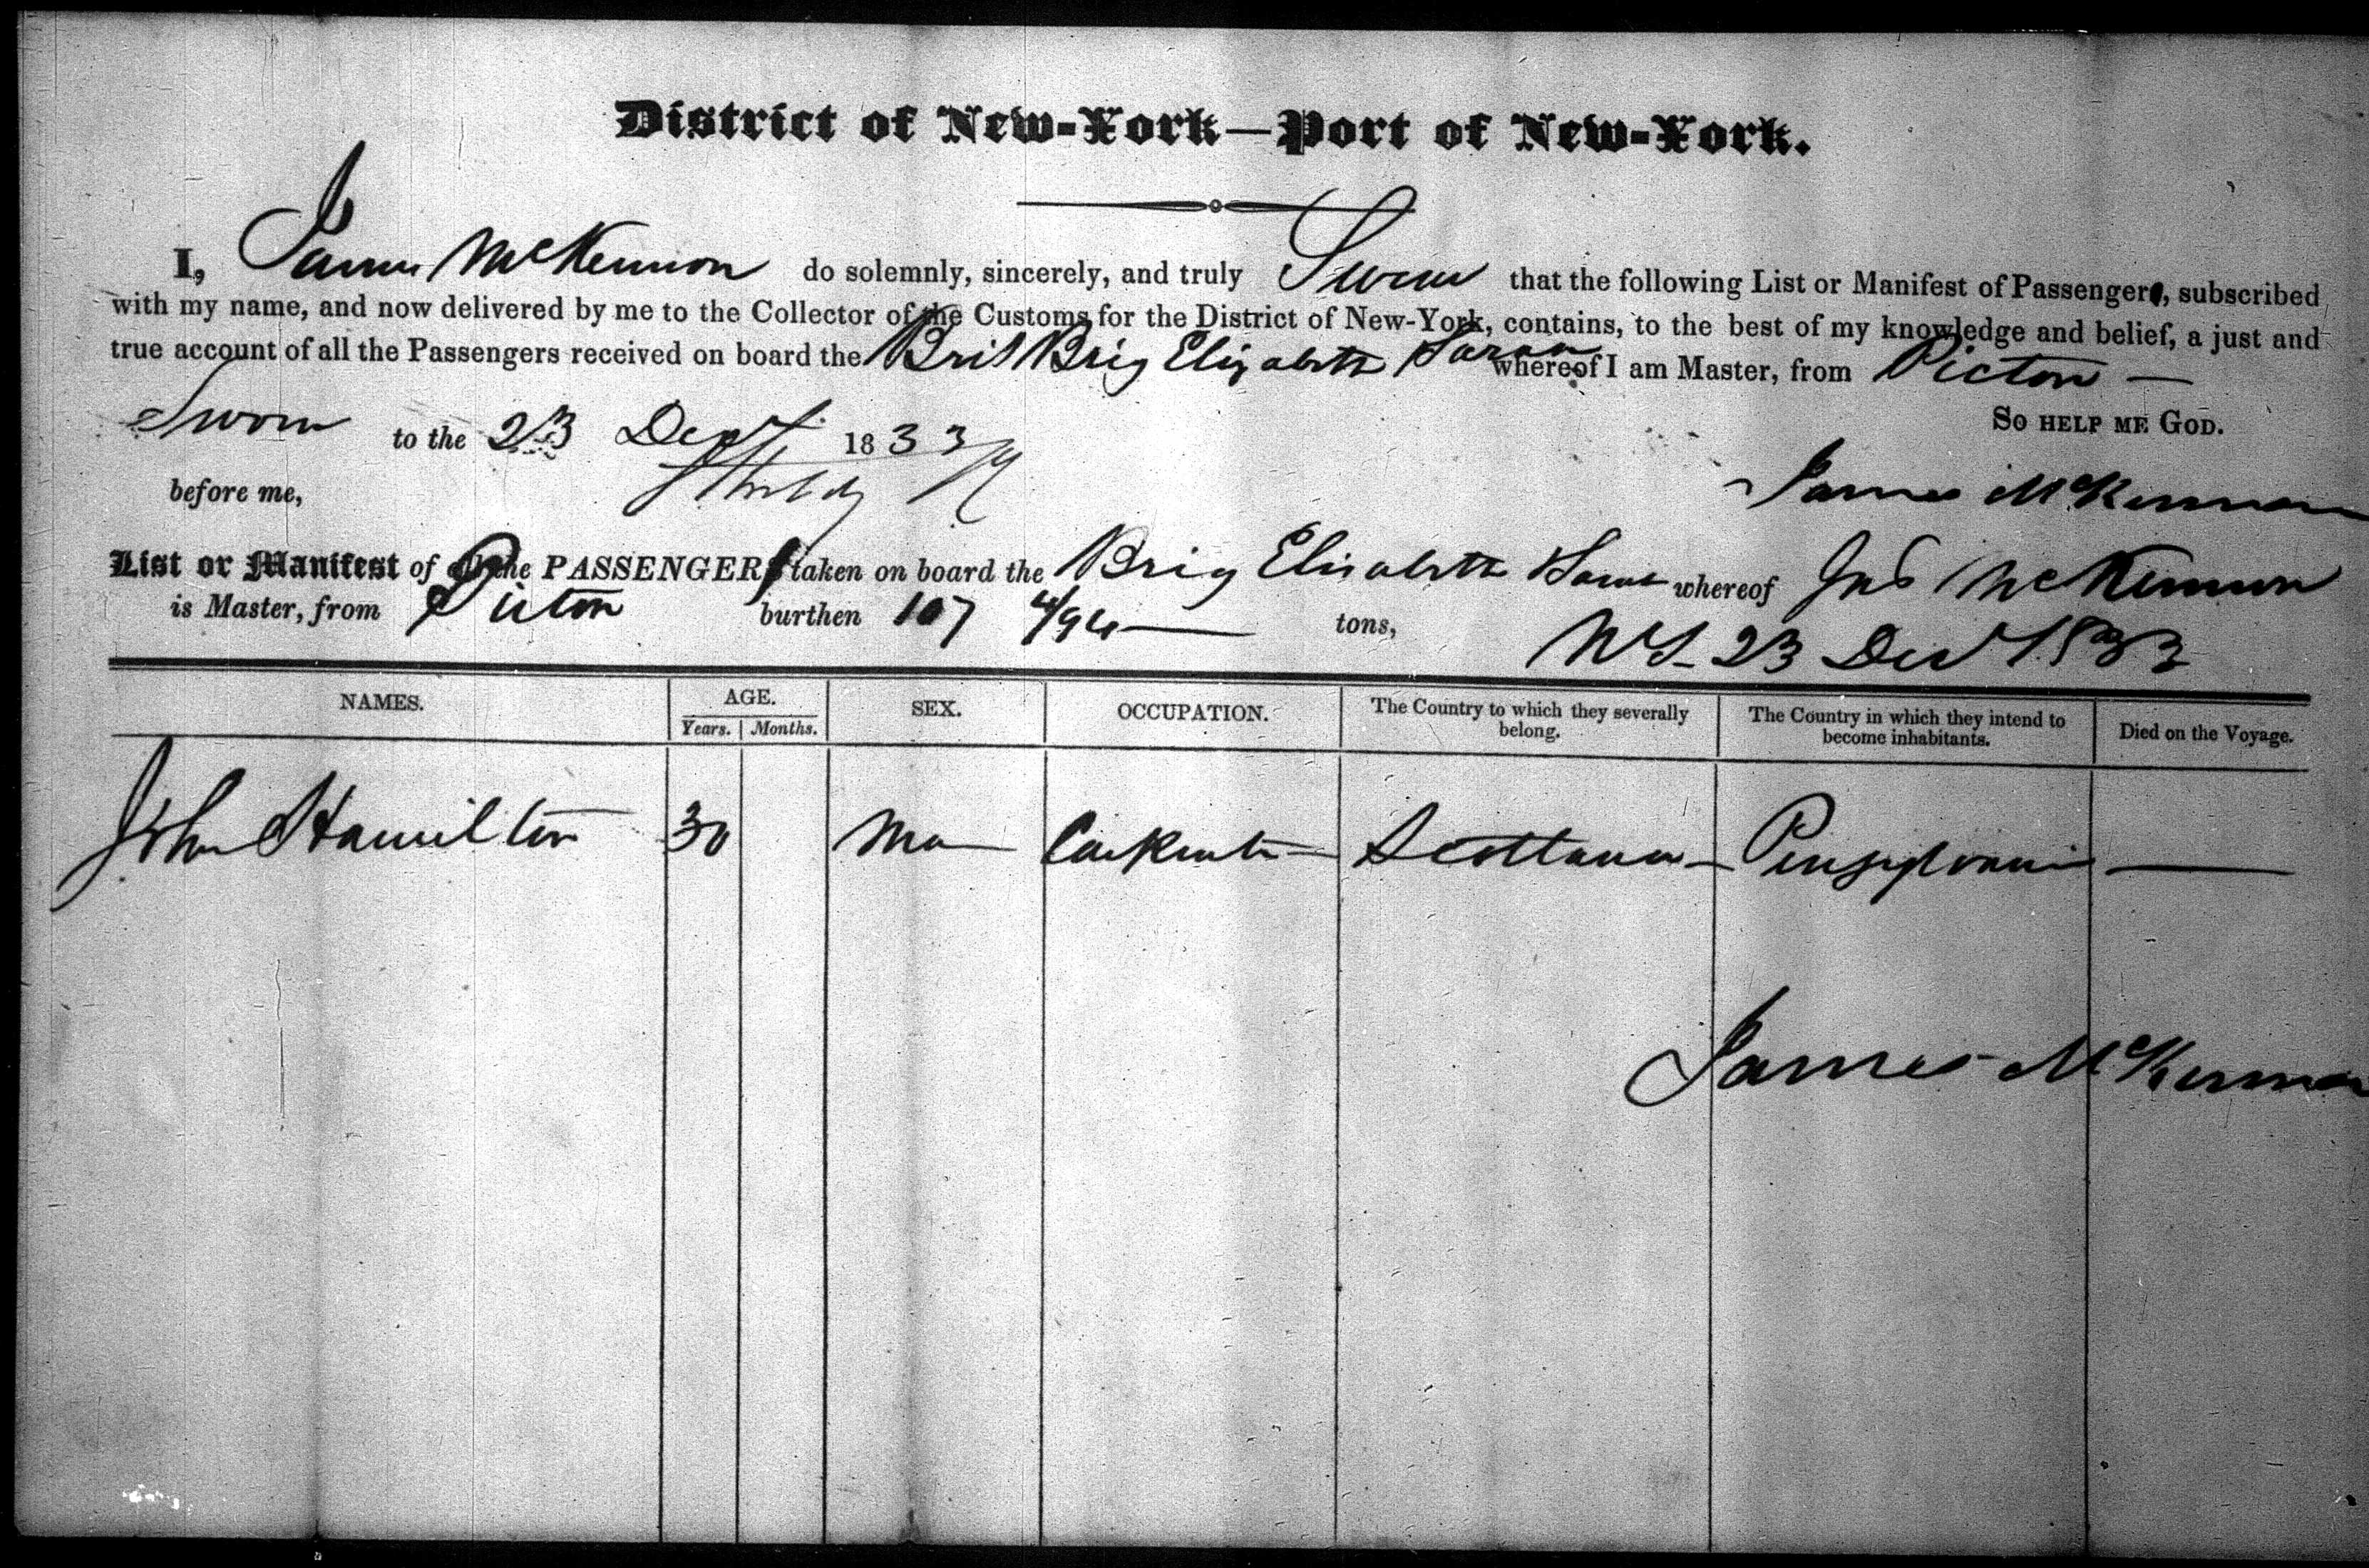 District of New-York—Port of New-York.
I, James McKennon do solemnly, sincerely, and truly Swear that the following List or Manifest of Passenger, subscribed
with my name, and now delivered by me to the Collector of the Customs for the District of New-York, contains, to the best of my knowledge and belief, a just and
true account of all the Passengers received on board the Brit Brig Elizabeth Sarah whereof I am Master, from Picton —
So HELP ME GOD.
Sworn to the 23 Dec 1833
James McKennon
before me,
List or Manifest of the PASSENGER taken on board the Brig Elizabeth Sarah whereof Jas McKennon
is Master, from Picton burthen 107 4/94 — tons,
NY 23 Dec 1833
NAMES. AGE. SEX. OCCUPATION. The Country to which they severally belong. The Country in which they intend to become inhabitants. Died on the Voyage.
Years. Months.
John Hamilton 30 Ma Carpenter Scotland Pensylvania —
James McKennon